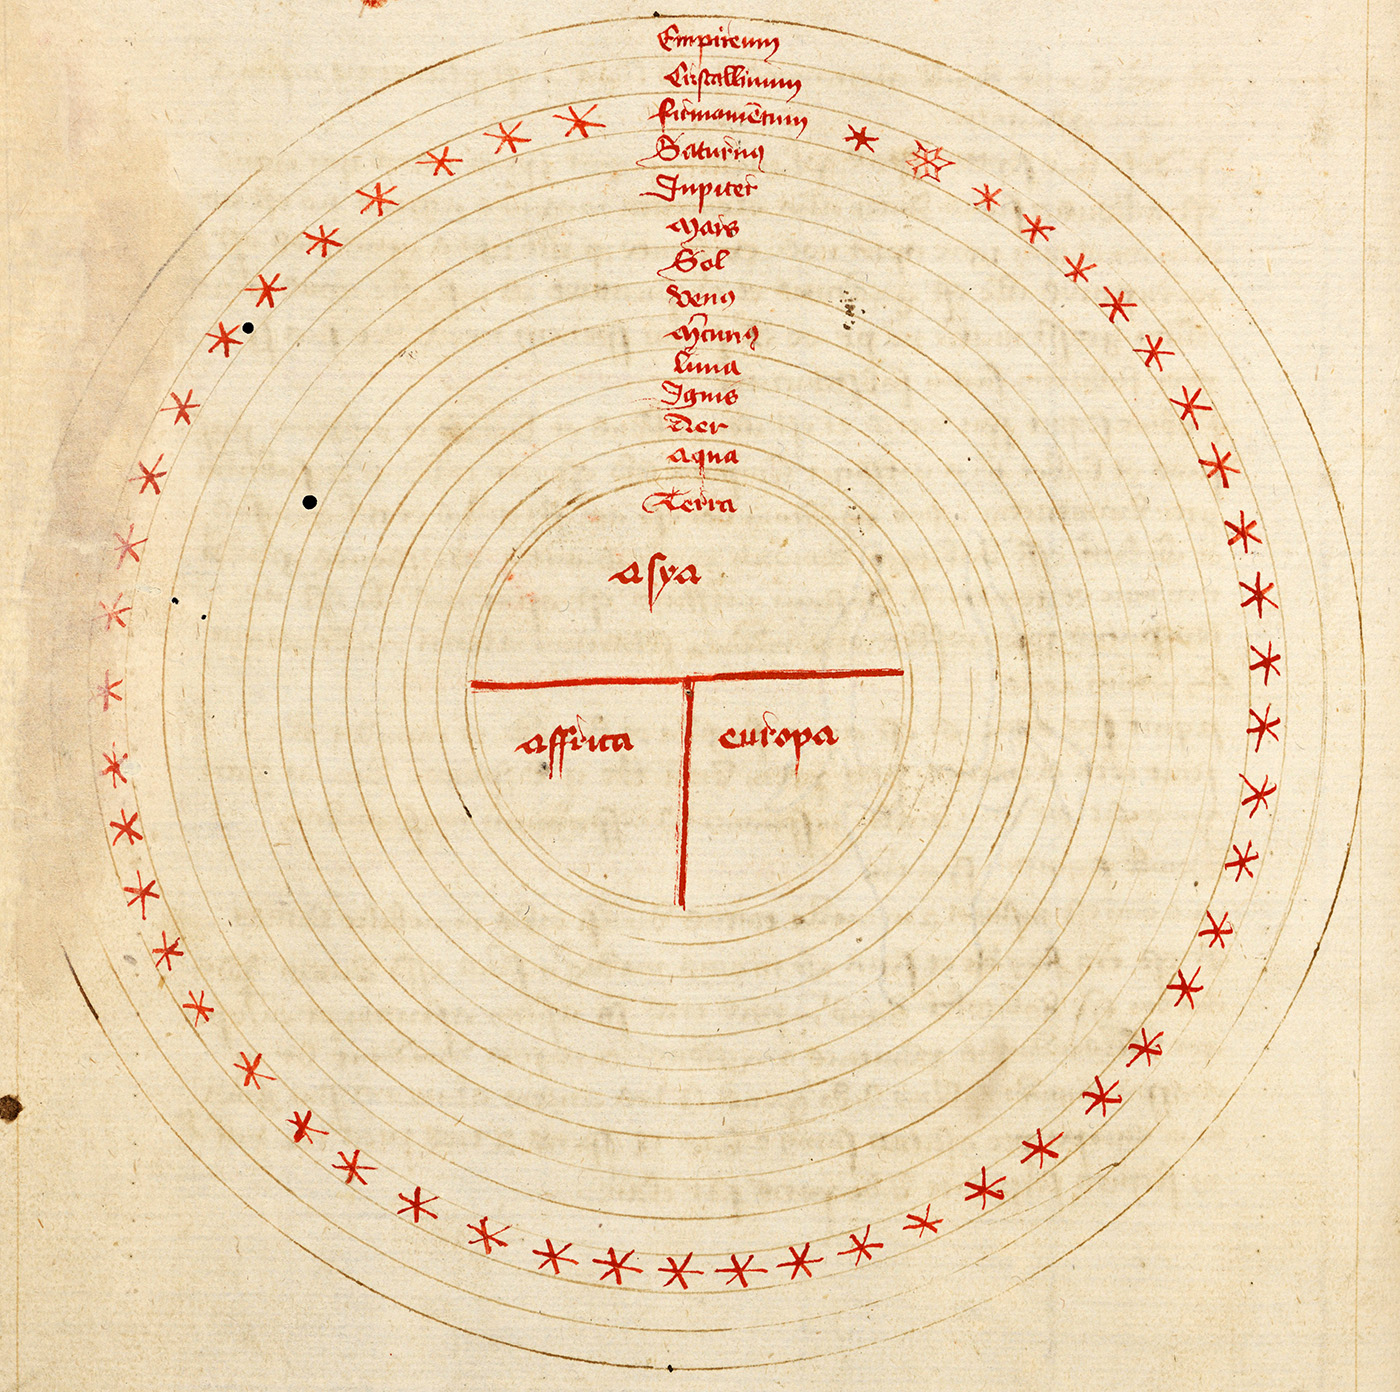 Empireum
Cristallinum
firmamētum
Saturnꝰ
Jupiter
Mars
Sol
Venꝰ
M̄curiꝰ
luna
Ignis
Aer
aqua
Terra
asya
affrica
europa